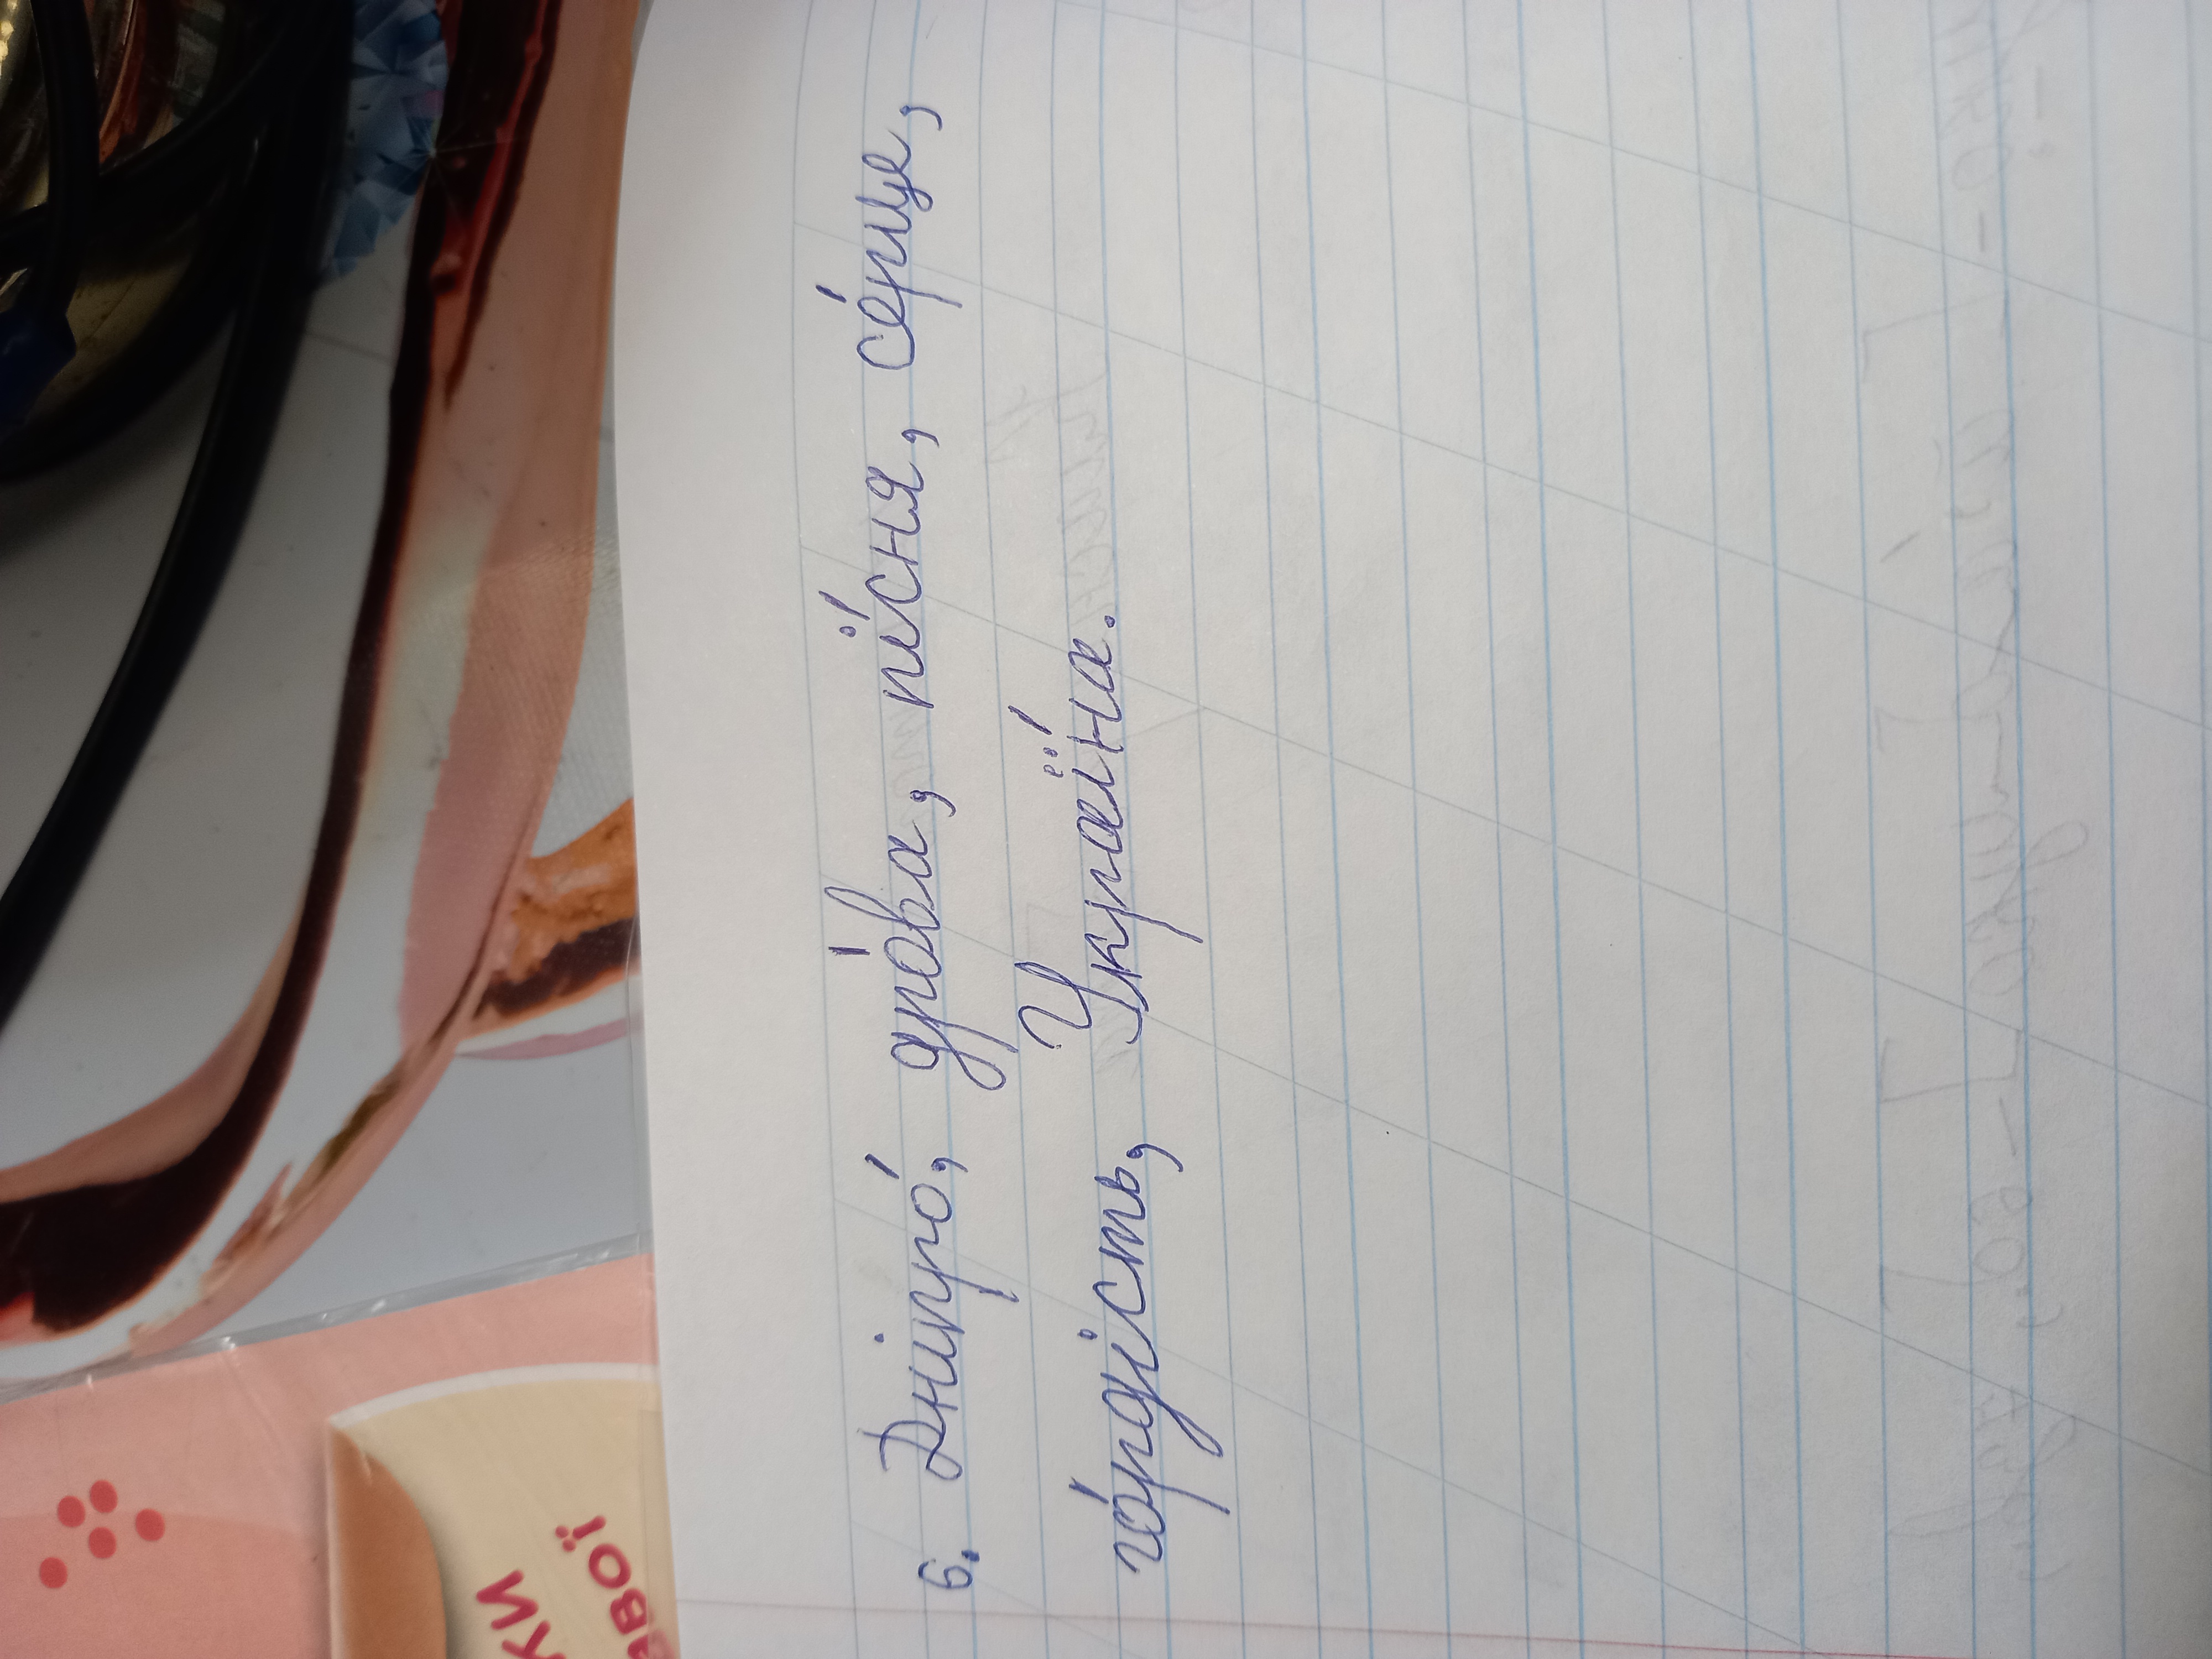 6. Дніпро́, дро́ва, пі́сня, се́рце,
го́рдість, Украї́на.
КИ
АВОЇ